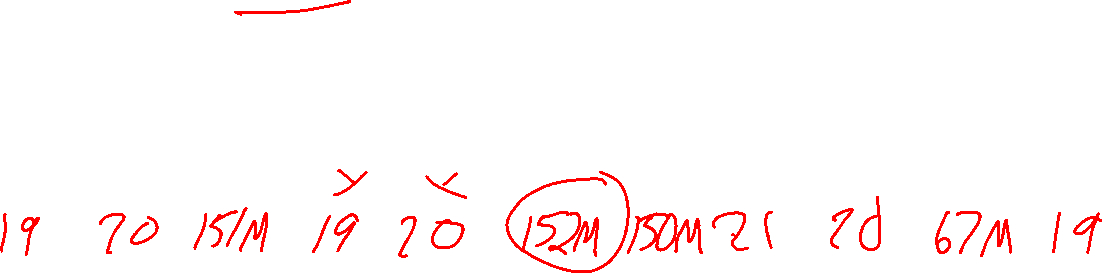 19 20 151M 19 20 152M 150M 21 20 67M 19